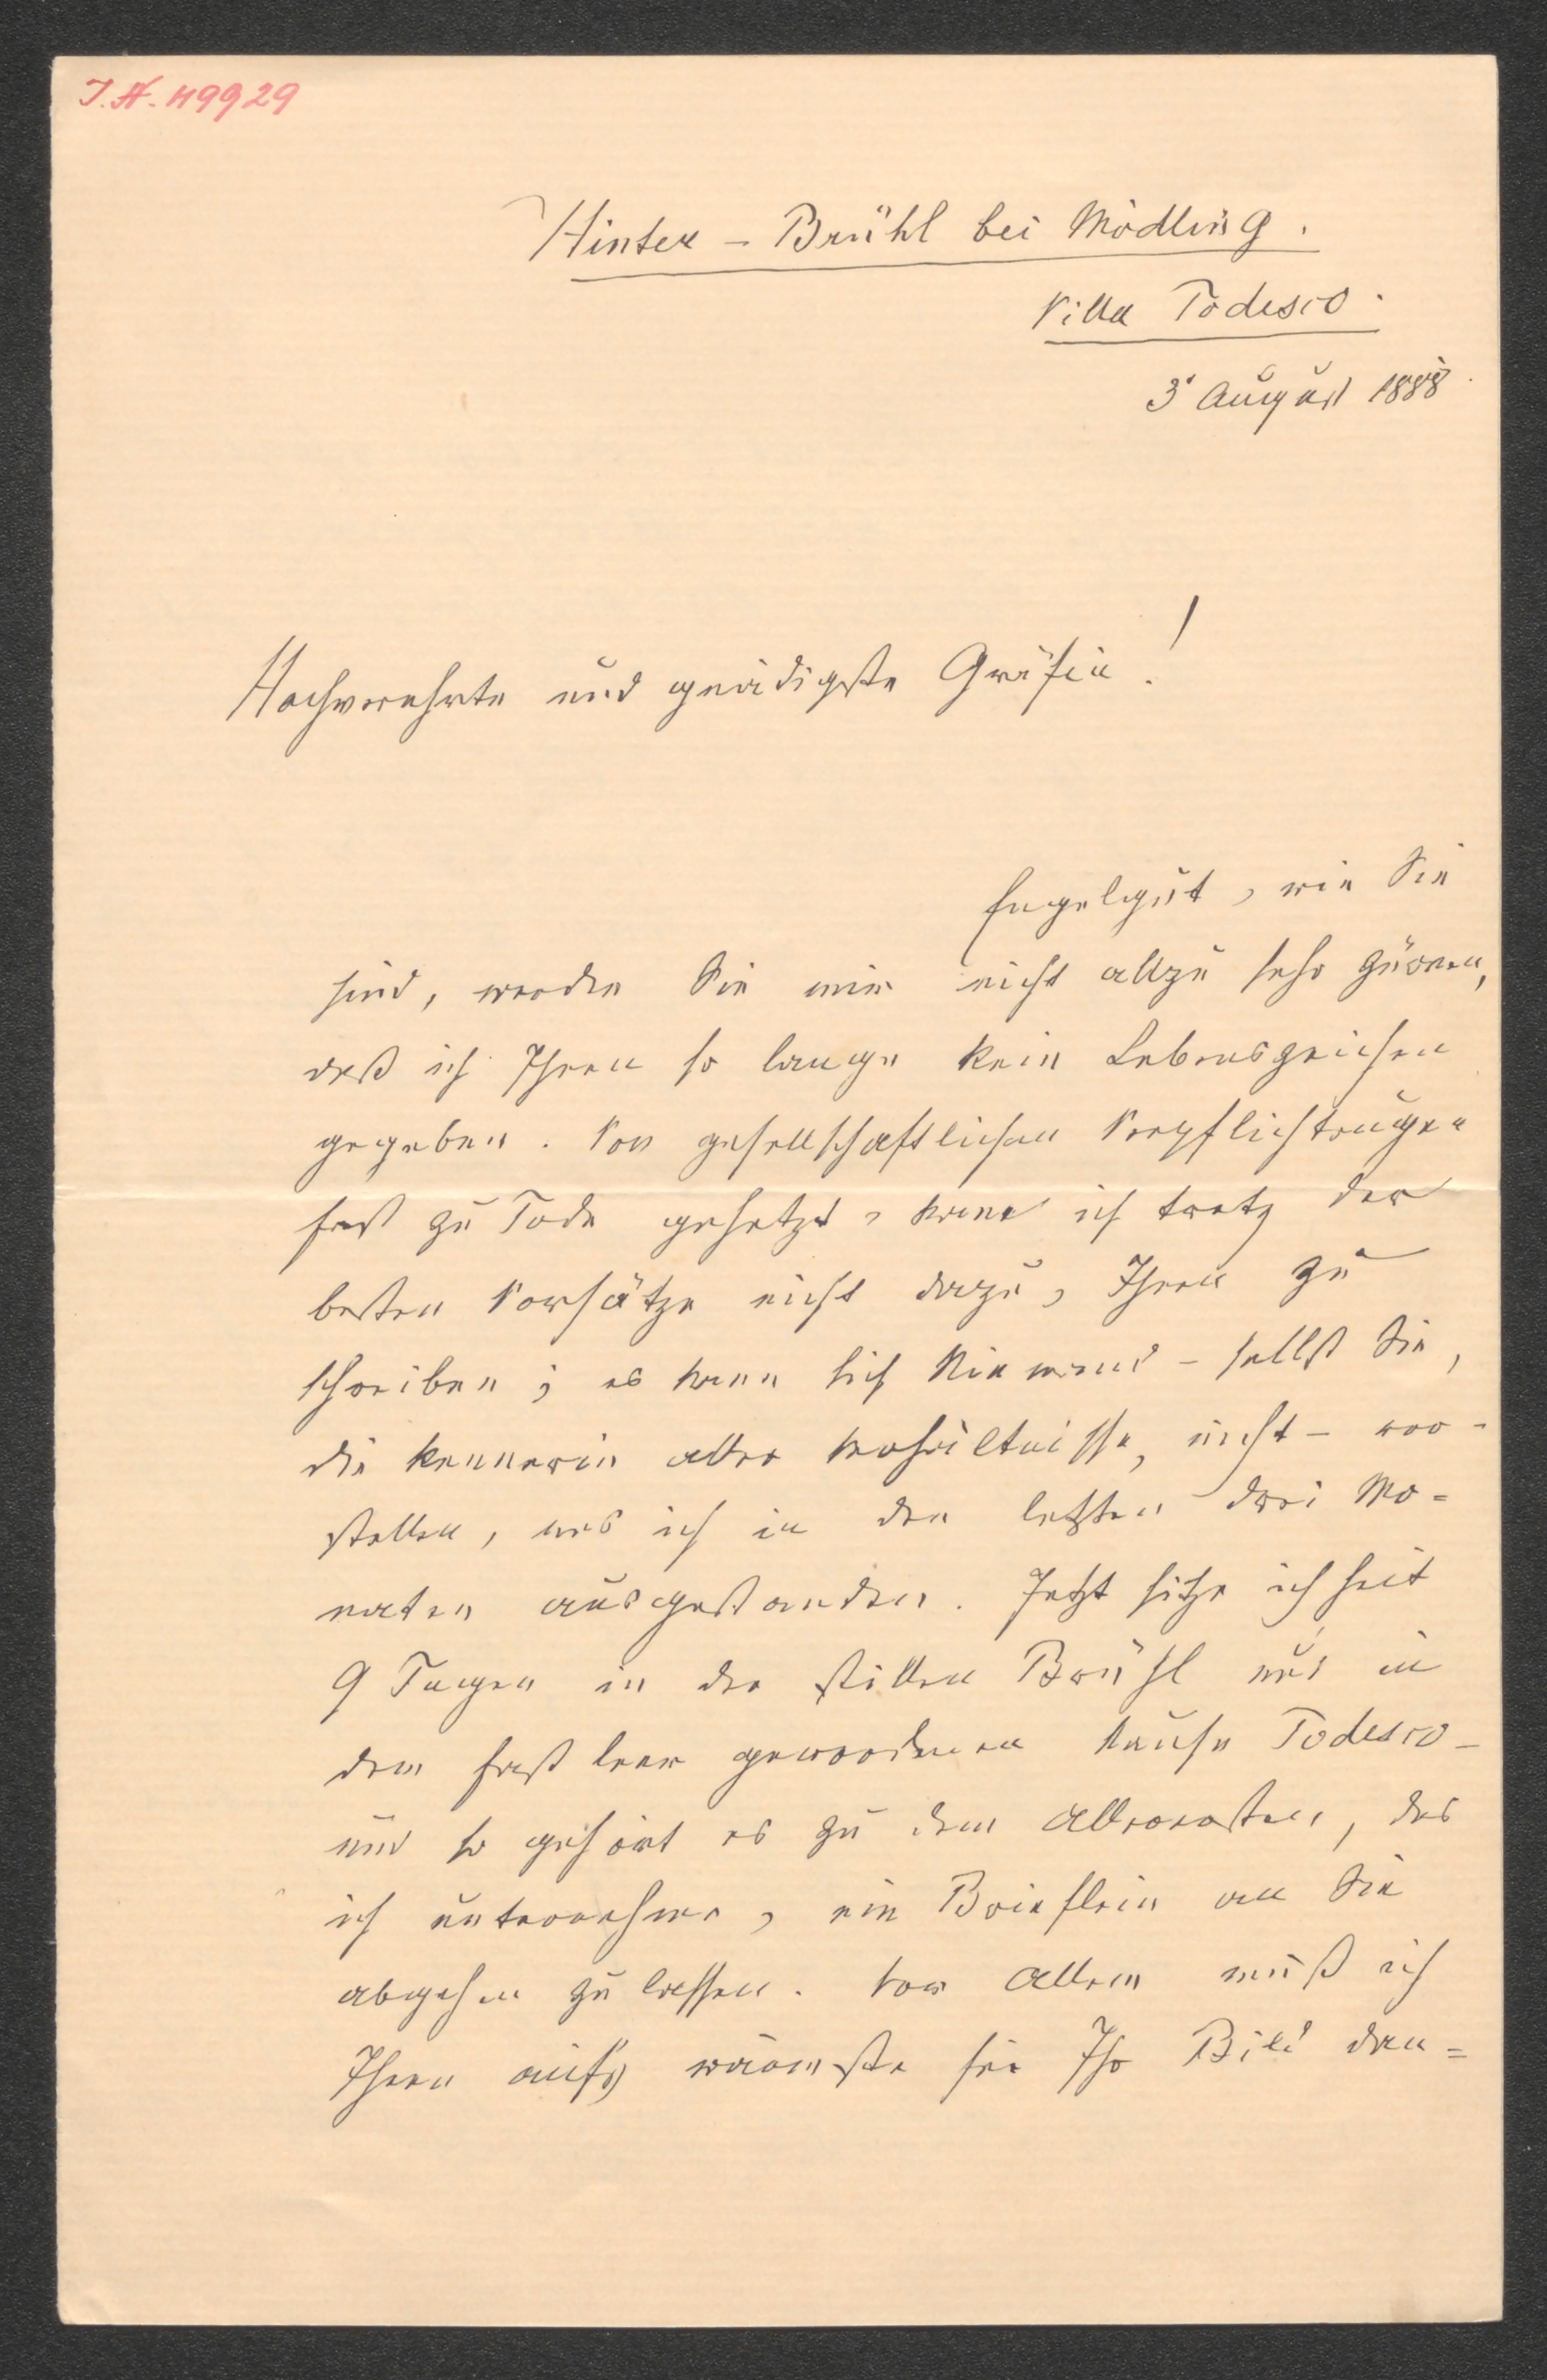 I.N. 49929
Hinter-Brühl bei Mödling.
Villa Todesco.
3t August 1888.
Hochverehrte und gnädigste Gräfin!
Engelgut, wie Sie
sind, werden Sie mir nicht allzu sehr zürnen,
daß ich Ihnen so lange kein Lebenszeichen
gegeben. Von gesellschaftlichen Verpflichtungen
fast zu Tode gehetzt, kam ich trotz der
besten Vorsätze nicht dazu, Ihnen zu
schreiben; es kann sich Niemand – selbst Sie,
die Kennerin aller Verhältnisse, nicht – vor-
stellen, was ich in den letzten drei Mo=
naten ausgestanden. Jetzt sitze ich seit
9 Tagen in der stillen Brühl und in
dem fast leer gewordenen Hause Todesco –
und so gehört es zu dem Allerersten, das
ich unternehme, ein Brieflein an Sie
abgehen zu lassen. Vor Allem muß ich
Ihnen auf's wärmste für Ihr Bild dan=